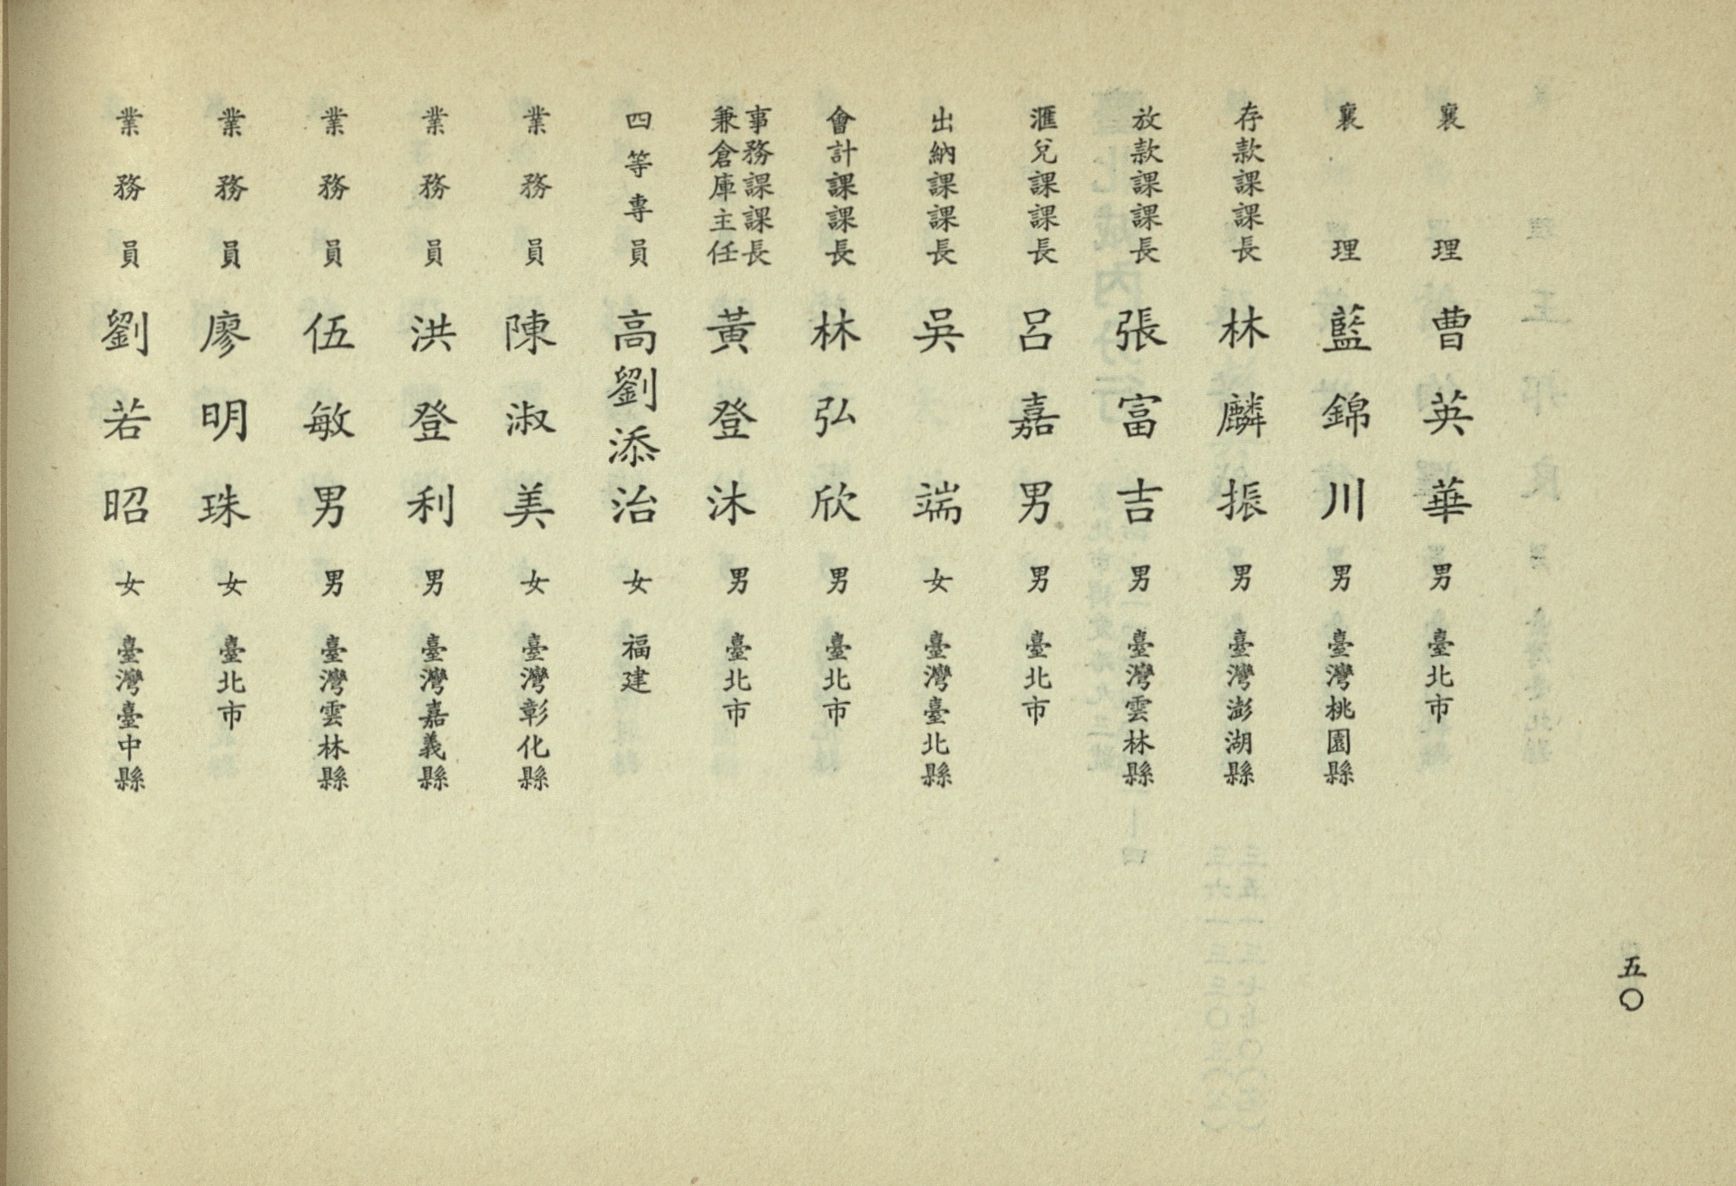 襄理 曹英華 男 臺北市
襄理 藍錦川 男 臺灣桃園縣
存款課課長 林麟振 男 臺灣澎湖縣
放款課課長 張富吉 男 臺灣雲林縣
滙兌課課長 呂嘉男 男 臺北市
出納課課長 吳端 女 臺灣臺北縣
會計課課長 林弘欣 男 臺北市
事務課課長兼倉庫主任 黃登沐 男 臺北市
四等專員 高劉添治 女 福建
業務員 陳淑美 女 臺灣彰化縣
業務員 洪登利 男 臺灣嘉義縣
業務員 伍敏男 男 臺灣雲林縣
業務員 廖明珠 女 臺北市
業務員 劉若昭 女 臺灣臺中縣
五〇